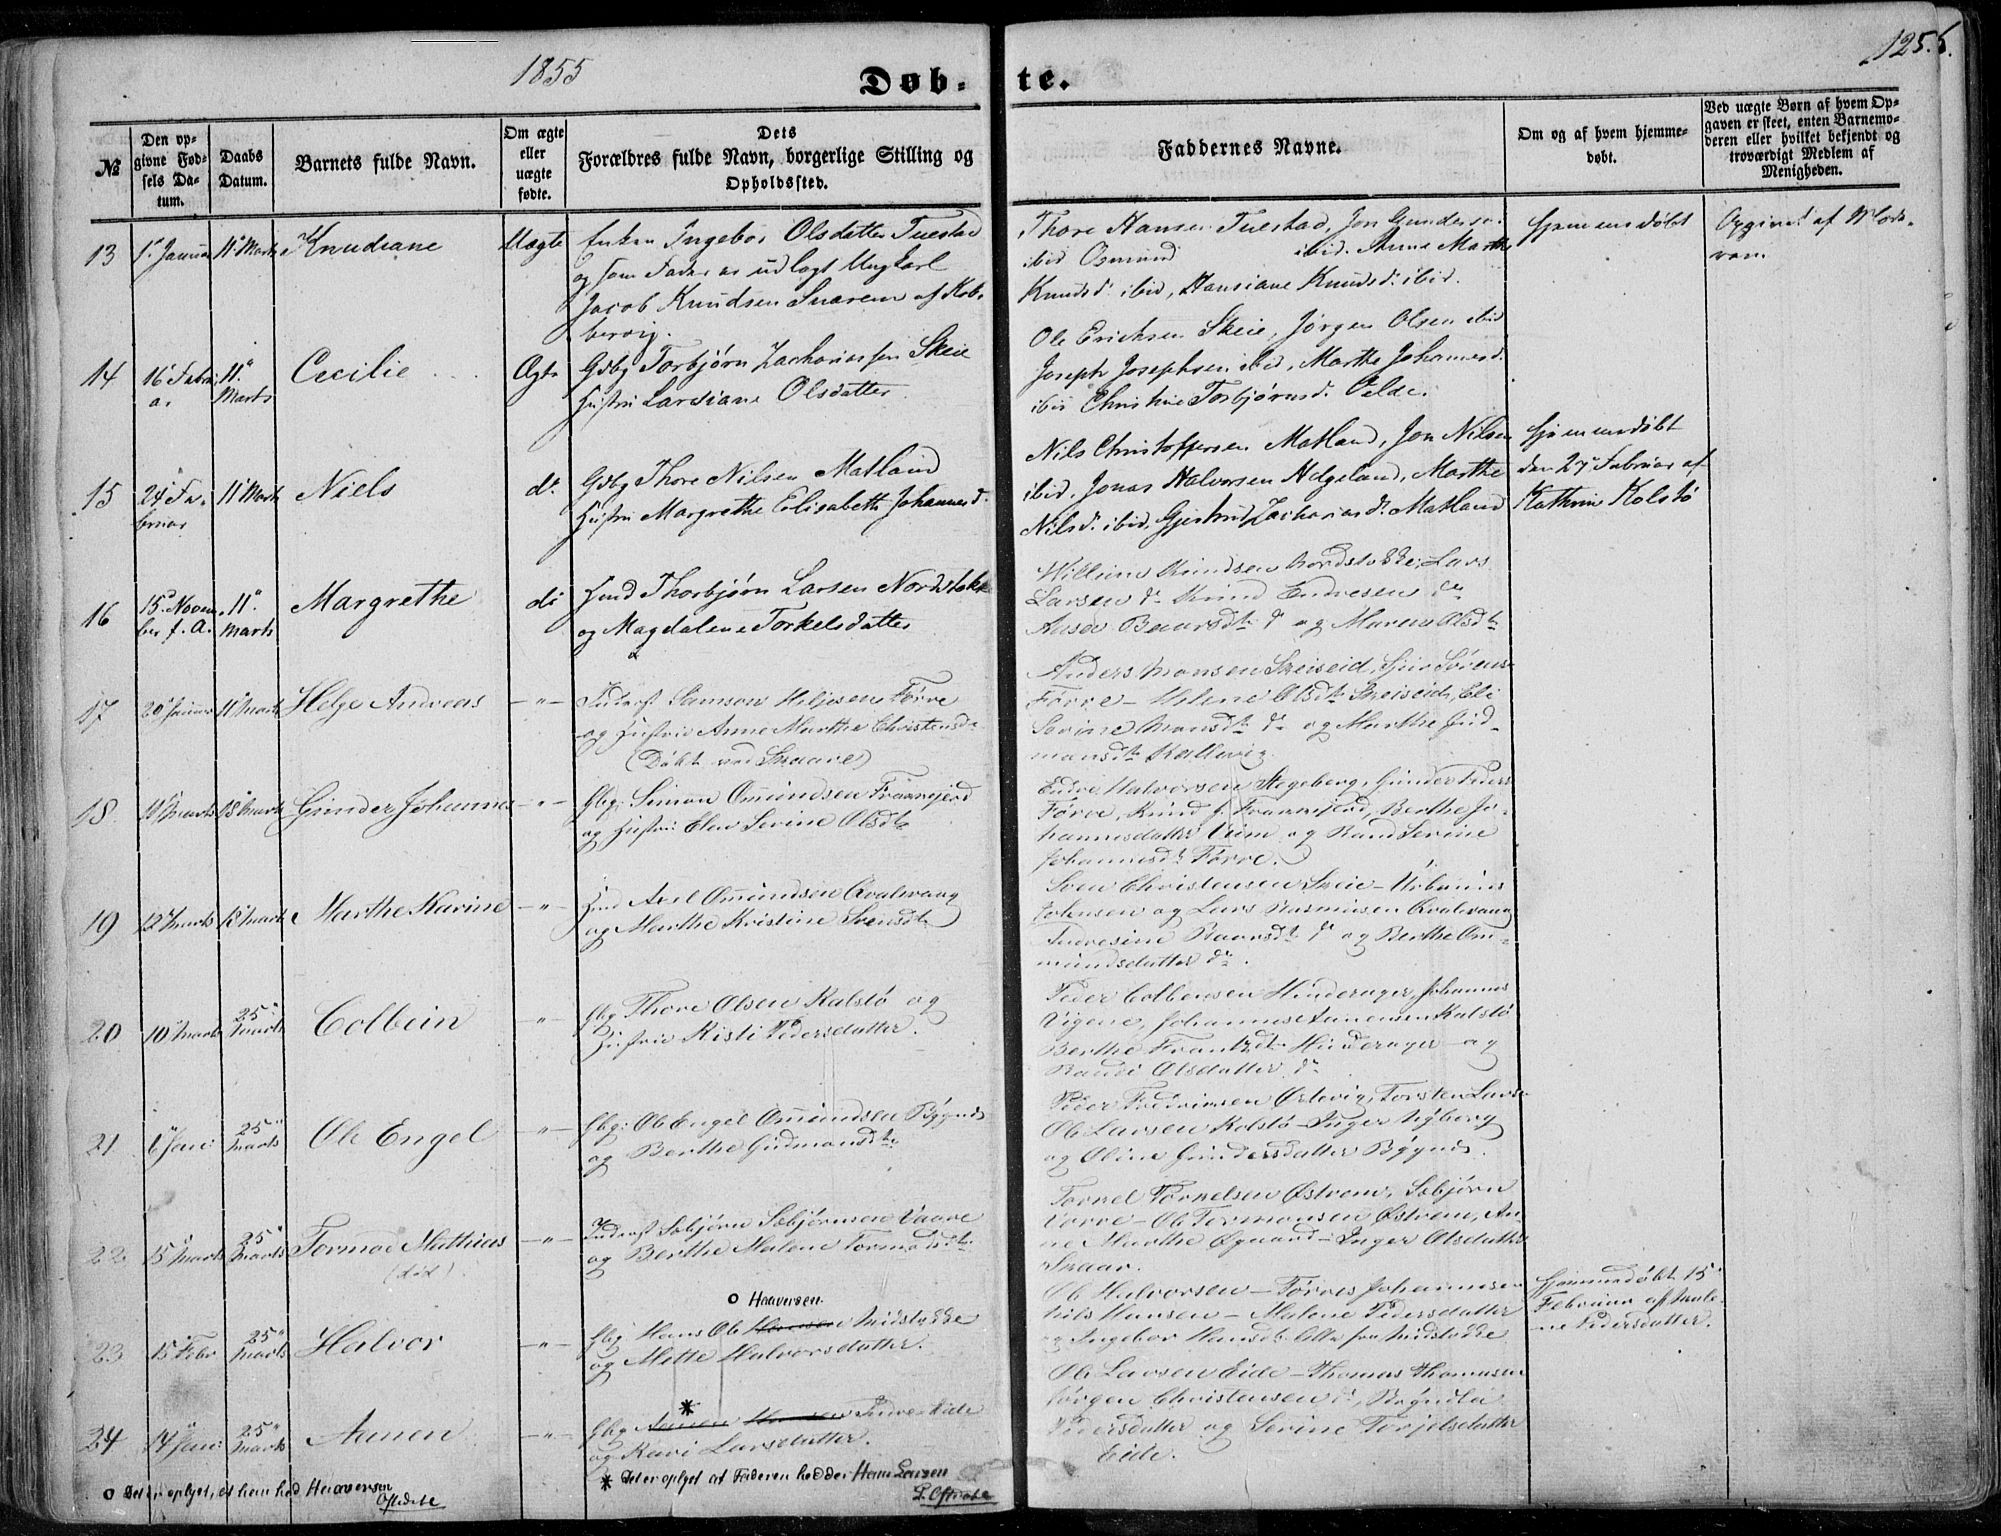 1855
125. b.
Døb-te.
№
Den opgivne Fødsels Datum.
Daabs Datum.
Barnets fulde Navn.
Om ægte eller uægte fødte.
Dets Forældres fulde Navn, borgerlige Stilling og Opholdssted.
Faddernes Navne.
Om og af hvem hjemmedøbt.
Ved uægte Børn af hvem Opgaven er skeet, enten Barnemoderen eller hvilket bekjendt og troværdigt Medlem af Menigheden.
13
1" Januar
11" Marts
Knudiane
Uægte
Enken Ingebor Olsdatter Tuestad
og som Fader er udlagt Ungkarl
Jacob Knudsen Snarem af Kob-
bervig.
Thore Hansen Tuestad, Jon Gunderse.
ibid Osmund ibid. Anne Marthe
Knudsd. ibid, Hansiane Knudsd. ibid.
hjemmedøbt
Opgivet af Mode-
ren.
14
16 Febru-
ar
11" Marts
Cecilie
Ægte
Gdbg Torbjørn Zachariassen Skeie
Hustru Larsiane Olsdatter
Ole Erichsen Skeie, Jørgen Olsen ibid
Joseph Josephsen ibid, Marthe Johannesd.
ibid Christine Torbjørnsd. Velde.
15
24" Fe-
bruar
11" Marts
Niels
do.
Gdbg Thore Nilsen Matland
Hustru Margrethe Elisabeth Johannesd.
Nils Christoffersen Matland, Jon Nilsen
ibid. Jonas Halvorsen Helgeland, Marthe
Nilsd. ibid. Gjertrud Zachariasd. Matland
hjemmedøbt
den 27" Februar af
Kathrine Kolstø
16
15" Novem-
ber f. A.
11" Marts
Margrethe
do
Hmd Thorbjørn Larsen Nordstokke
og Magdalene Torkelsdatter
Willum Knudsen Nordstokke, Lars
Larsen do Knud Endresen do
Aasa Baarsdtr do og Maren Olsdtr
17
20" Januar
11" Marts
Helge Andreas
—"—
Inderst Samson Helgesen Førre
og Hustrue Anne Marthe Christensdr
(Døbt ved Skaare)
Anders Monsen Skeiseid, Geir Sørens.
Førre — Helene Olsdtr Skeiseid, Eli
Serine Monsdtr do og Marthe Gud-
mansdtr Kallevig
18.
11" Marts
18" Marts
Gunder Johannes
—"—
Gbg: Simon Omundsen Fraanjerd
og Hustru Elen Serine Olsdtr
Endre Halvorsen Stegeberg, Gunder Peders.
Førre, Knud J. Fraanjerd, Berthe Jo-
hannesdatter Veim og Rand Serine
Johannesdr Førre.
19
12" Marts
18" Marts
Marthe Karine
—"—
Hmd Axel Omundsen Qvalevaag
og Marthe Kristine Svendsdtr
Sven Christensen Skeie — Urbanus
Johnsen og Lars Rasmusen Qvalevaag
Andresine Baarsdtr do og Berthe Om-
mundsdatter do.
20
10" Marts
25" Marts
Colbein
—"—
Gbg Thore Olsen Kalstø og
Hustrue Kisti Pedersdatter.
Peder Colbensen Hinderager, Johannes
Vigene, Johannes Aanensen Kalstø
Berthe Frantzdtr Hinderager og
Randi Olsdatter do
21
6" Jan:
25" Marts
Ole Engel
—"—
Gbg: Ole Engel Omundsen Bøgnes
og Berthe Gudmansdtr
Peder Fredriksen Østevig, Torsten Larsen
Ole Larsen Kolstø — Inger Nyberg
og Oline Gundersdatter Bøgnes.
22
15" Marts
25" Marts
Tormoe Mathias
(død)
—"—
Inderst Sebjørn Sebjørnsen Vaare
og Berthe Malene Tormodsdtr
Torkel Torkelsen Østrem, Sebjørn
Vorre — Ole Tormonsen Østrem, An-
ne Marthe Øgaard — Inger Olsdatter
Skaar.
23
15" Febr
25" Marts
Halvor
—"—
o Haaversen
Gbg Hans Ole Hansen Midstokke
og Mette Halvorsdatter.
Ole Halvorsen — Torres Johannesen
Nils Hansen — Malene Pedersdatter
og Ingebor Hansdtr Alle fra Midstokke
Hjemmedøbt 15"
Februar af Male-
ne Pedersdatter.
24
14" Jan:
25" Marts
Aanen
—"—
*
Gbg Aanen Hansen Indre-Eide
og Kari Larsdatter.
Ole Larsen Eide — Thomas Thomasen
Jørgen Christensen do, Bøgnela
Pedersdatter og Serine Torjelsdatter
Eide.
o Det er oplyst, at han hed Haaversen
Oftedal
* Det er oplyst at Faderen hedder Hans Larsen
L. Oftedal